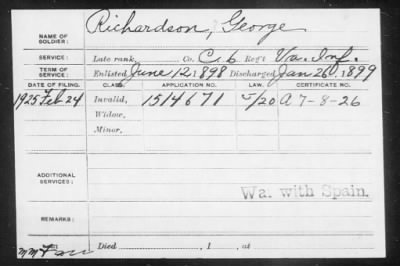 NAME OF SOLDIER: Richardson, George
SERVICE: Late rank, Co. C. 6 Reg't Va. Inf.
TERM OF SERVICE: Enlisted June 12, 1898 Discharged Jan 26, 1899
DATE OF FILING. CLASS. APPLICATION NO. LAW. CERTIFICATE NO.
1925 Feb 24 Invalid, 1514671 5/20 A 7-8-26
Widow,
Minor,
ADDITIONAL SERVICES:
War with Spain.
REMARKS:
Died , 1 , at